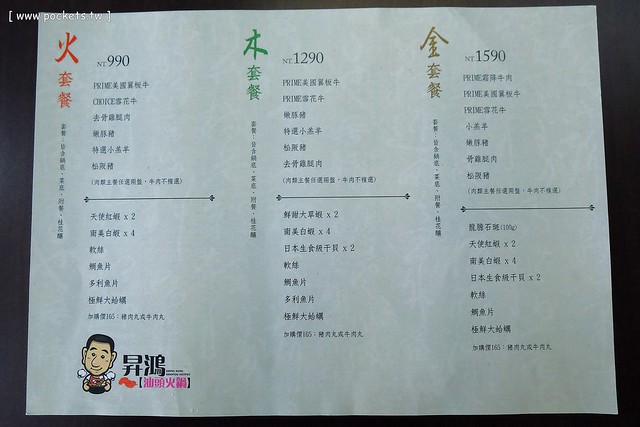 [ www.pockets.tw ]
火套餐
NT.990
PRIME美國翼板牛
CHOICE雪花牛
去骨雞腿肉
嫩豚豬
特選小羔羊
松阪豬
(肉類主餐任選兩盤，牛肉不種選)
套餐：皆含鍋底、菜底、附餐、桂花釀
天使紅蝦 x 2
南美白蝦 x 4
軟絲
鯛魚片
多利魚片
極鮮大蛤蠣
加購價165：豬肉丸或牛肉丸
木套餐
NT.1290
PRIME美國翼板牛
PRIME雪花牛
嫩豚豬
特選小羔羊
松阪豬
去骨雞腿肉
(肉類主餐任選兩盤，牛肉不種選)
套餐：皆含鍋底、菜底、附餐、桂花釀
鮮甜大草蝦 x 2
南美白蝦 x 4
日本生食級干貝 x 2
軟絲
鯛魚片
多利魚片
極鮮大蛤蠣
加購價165：豬肉丸或牛肉丸
金套餐
NT.1590
PRIME霜降牛肉
PRIME美國翼板牛
PRIME雪花牛
小羔羊
嫩豚豬
骨雞腿肉
松阪豬
(肉類主餐任選兩盤，牛肉不種選)
套餐：皆含鍋底、菜底、附餐、桂花釀
龍膽石斑(100g)
天使紅蝦 x 2
南美白蝦 x 4
日本生食級干貝 x 2
軟絲
鯛魚片
極鮮大蛤蠣
加購價165：豬肉丸或牛肉丸
昇鴻
【汕頭火鍋】